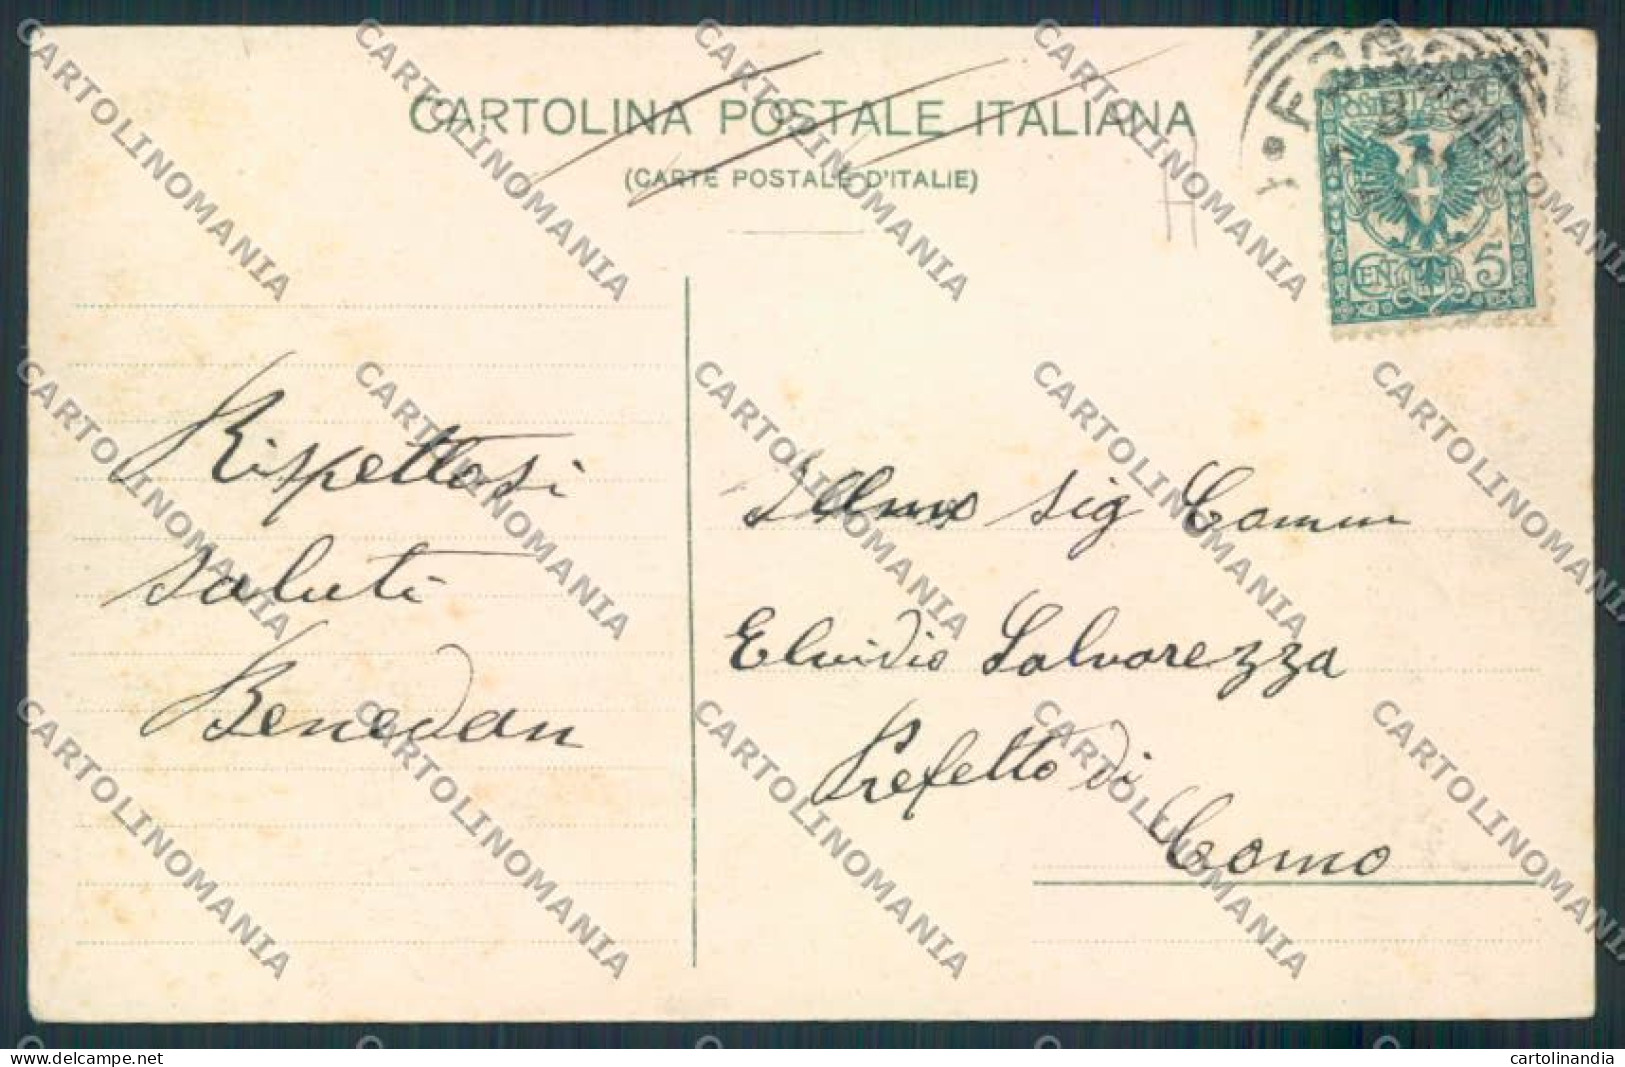 CARTOLINA POSTALE ITALIANA
(CARTE POSTALE D'ITALIE)
POSTE ITALIANE
CENT. 5
Rispettosi
saluti
Benedan
Illmo sig Comm
Elvidio Salvarezza
Prefetto di
Como
CARTOLINOMANIA
www.delcampe.net
cartolinandia